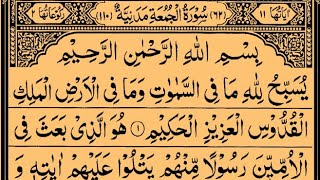 اٰیَاتُهَا ١١ (٦٢) سُوْرَةُ الْجُمُعَةِ مَدَنِيَّةٌ (١١٠) رُكُوْعَاتُهَا ٢
بِسْمِ اللهِ الرَّحْمٰنِ الرَّحِيْمِ
يُسَبِّحُ لِلّٰهِ مَا فِى السَّمٰوٰتِ وَمَا فِى الْاَرْضِ الْمَلِكِ
الْقُدُّوْسِ الْعَزِيْزِ الْحَكِيْمِ ﴿١﴾ هُوَ الَّذِىْ بَعَثَ فِى
الْاُمِّيّٖنَ رَسُوْلًا مِّنْهُمْ يَتْلُوْا عَلَيْهِمْ اٰيٰتِهٖ وَ